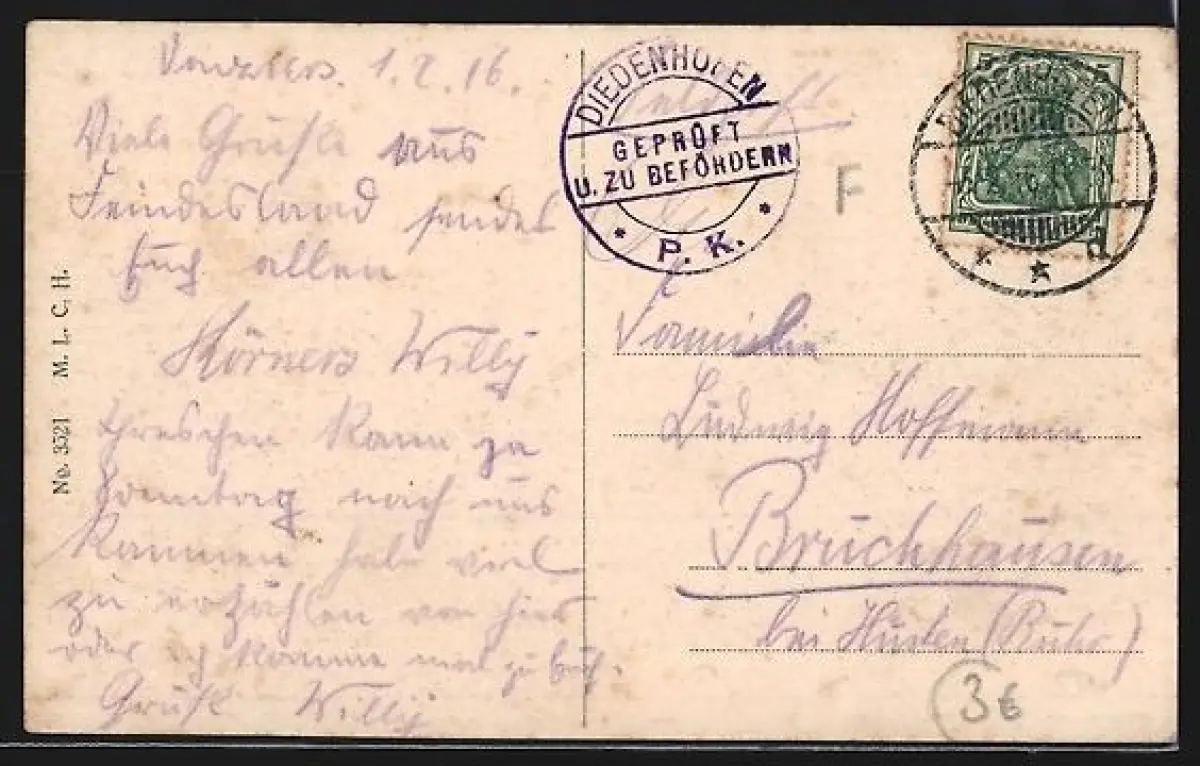 1.2.16.
Viele Grüße aus
Feindesland sendet
Euch allen
Willy
kann ja
Sonntag nach uns
kommen hab viel
zu erzählen von hier
oder ich komme mal zu Euch.
Gruß Willy
No. 3521 M. L. C, H.
DIEDENHOFEN
GEPRÜFT
U. ZU BEFÖRDERN
* P. K. *
F
5 5
Familie
Ludwig Hoffmann
Bruchhausen
bei Hüsten (Ruhr)
3€